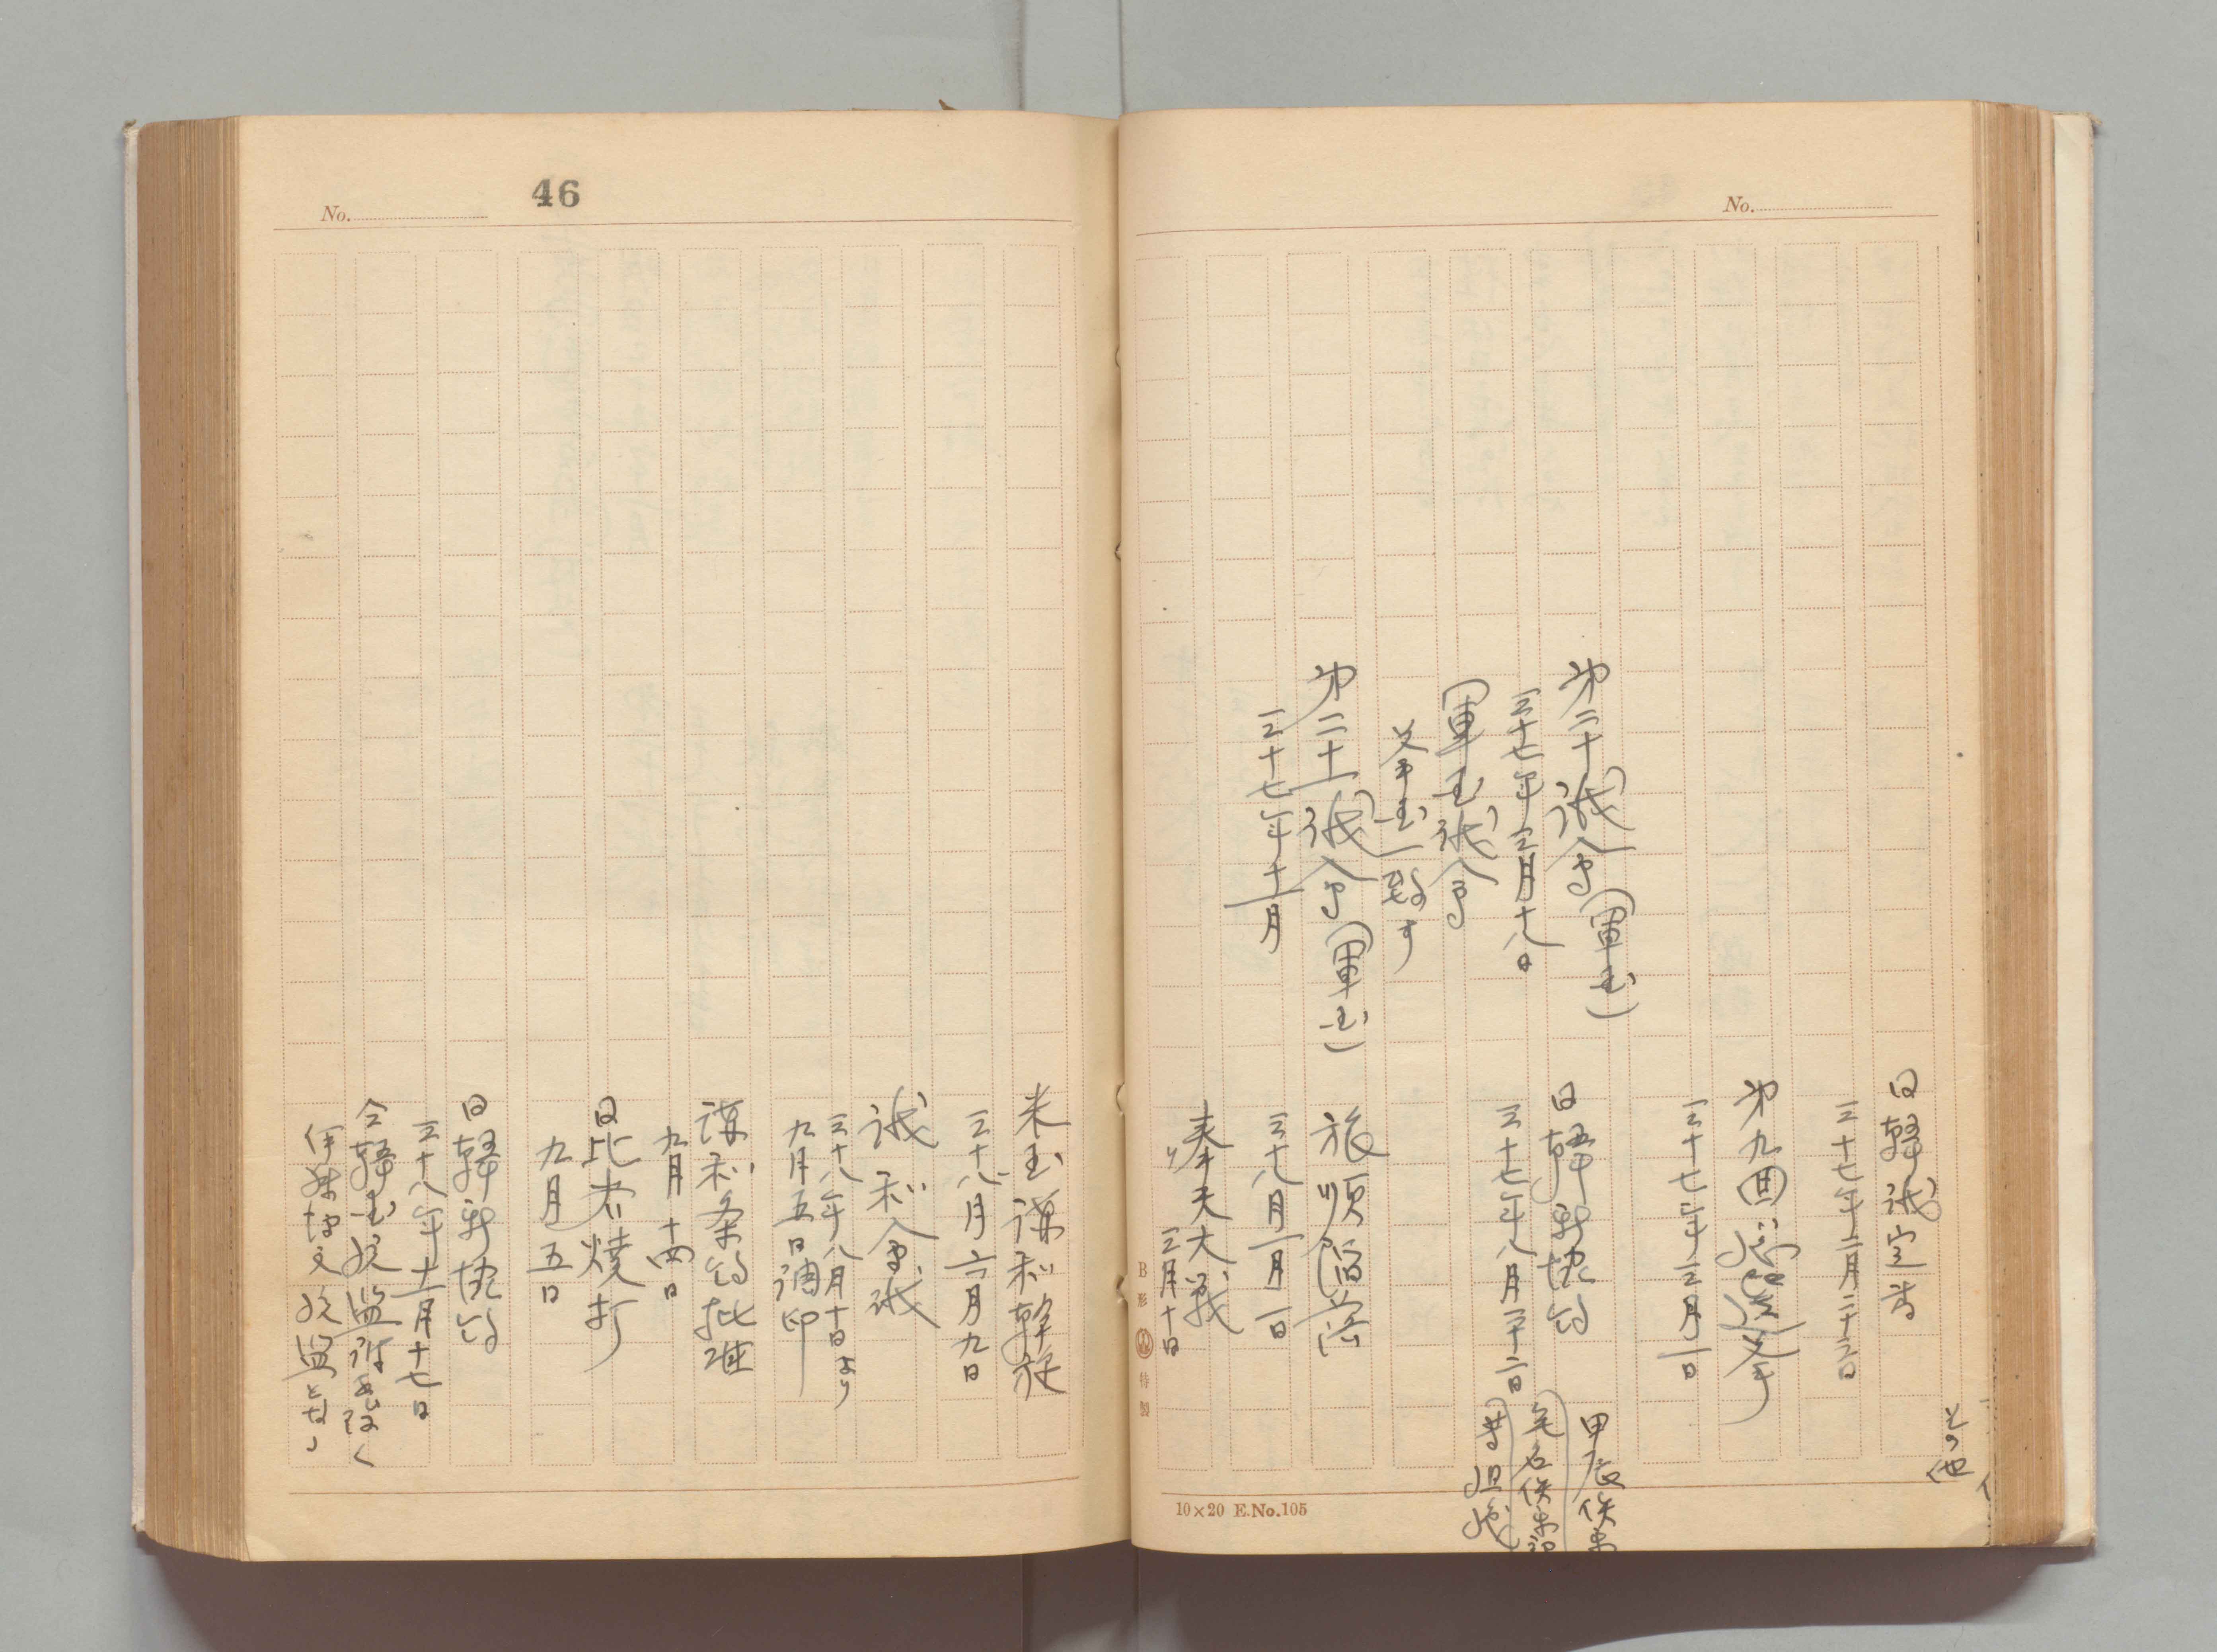 No.
その他
日韓議定書
三十七年二月二十三日
第九回総選挙
三十七年三月一日
第二十議会(軍国)
三十七年三月十八日
軍国議会
挙国一致す
第二十一議会(軍国)
三十七年十一月
甲辰倶楽
無名倶楽部
日韓新協約
三十七年八月二十二日
旅順陥落
三十八月一月一日
奉天大戦
三月十日
B形 特製
10×20 E.No.105
46
No.
米国講和斡旋
三十八月六月九日
講和会議
三十八年八月十日より
九月五日調印
講和条約批准
九月十四日
日比谷焼打
九月五日
日韓新協約
三十八年十一月十七日
今韓国統監府を置く
伊藤博文 統監となり